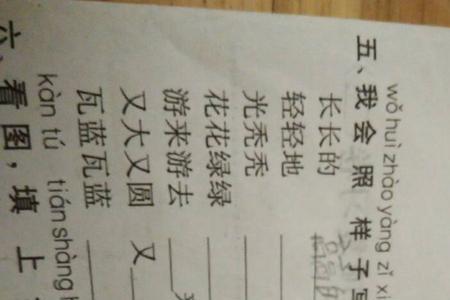 wǒ huì zhào yàng zǐ xi
五、我会照样子
长长的
轻轻地
光秃秃
花花绿绿
游来游去
又大又圆 又
瓦蓝瓦蓝
kàn tú tián shàng
六、看图，填上